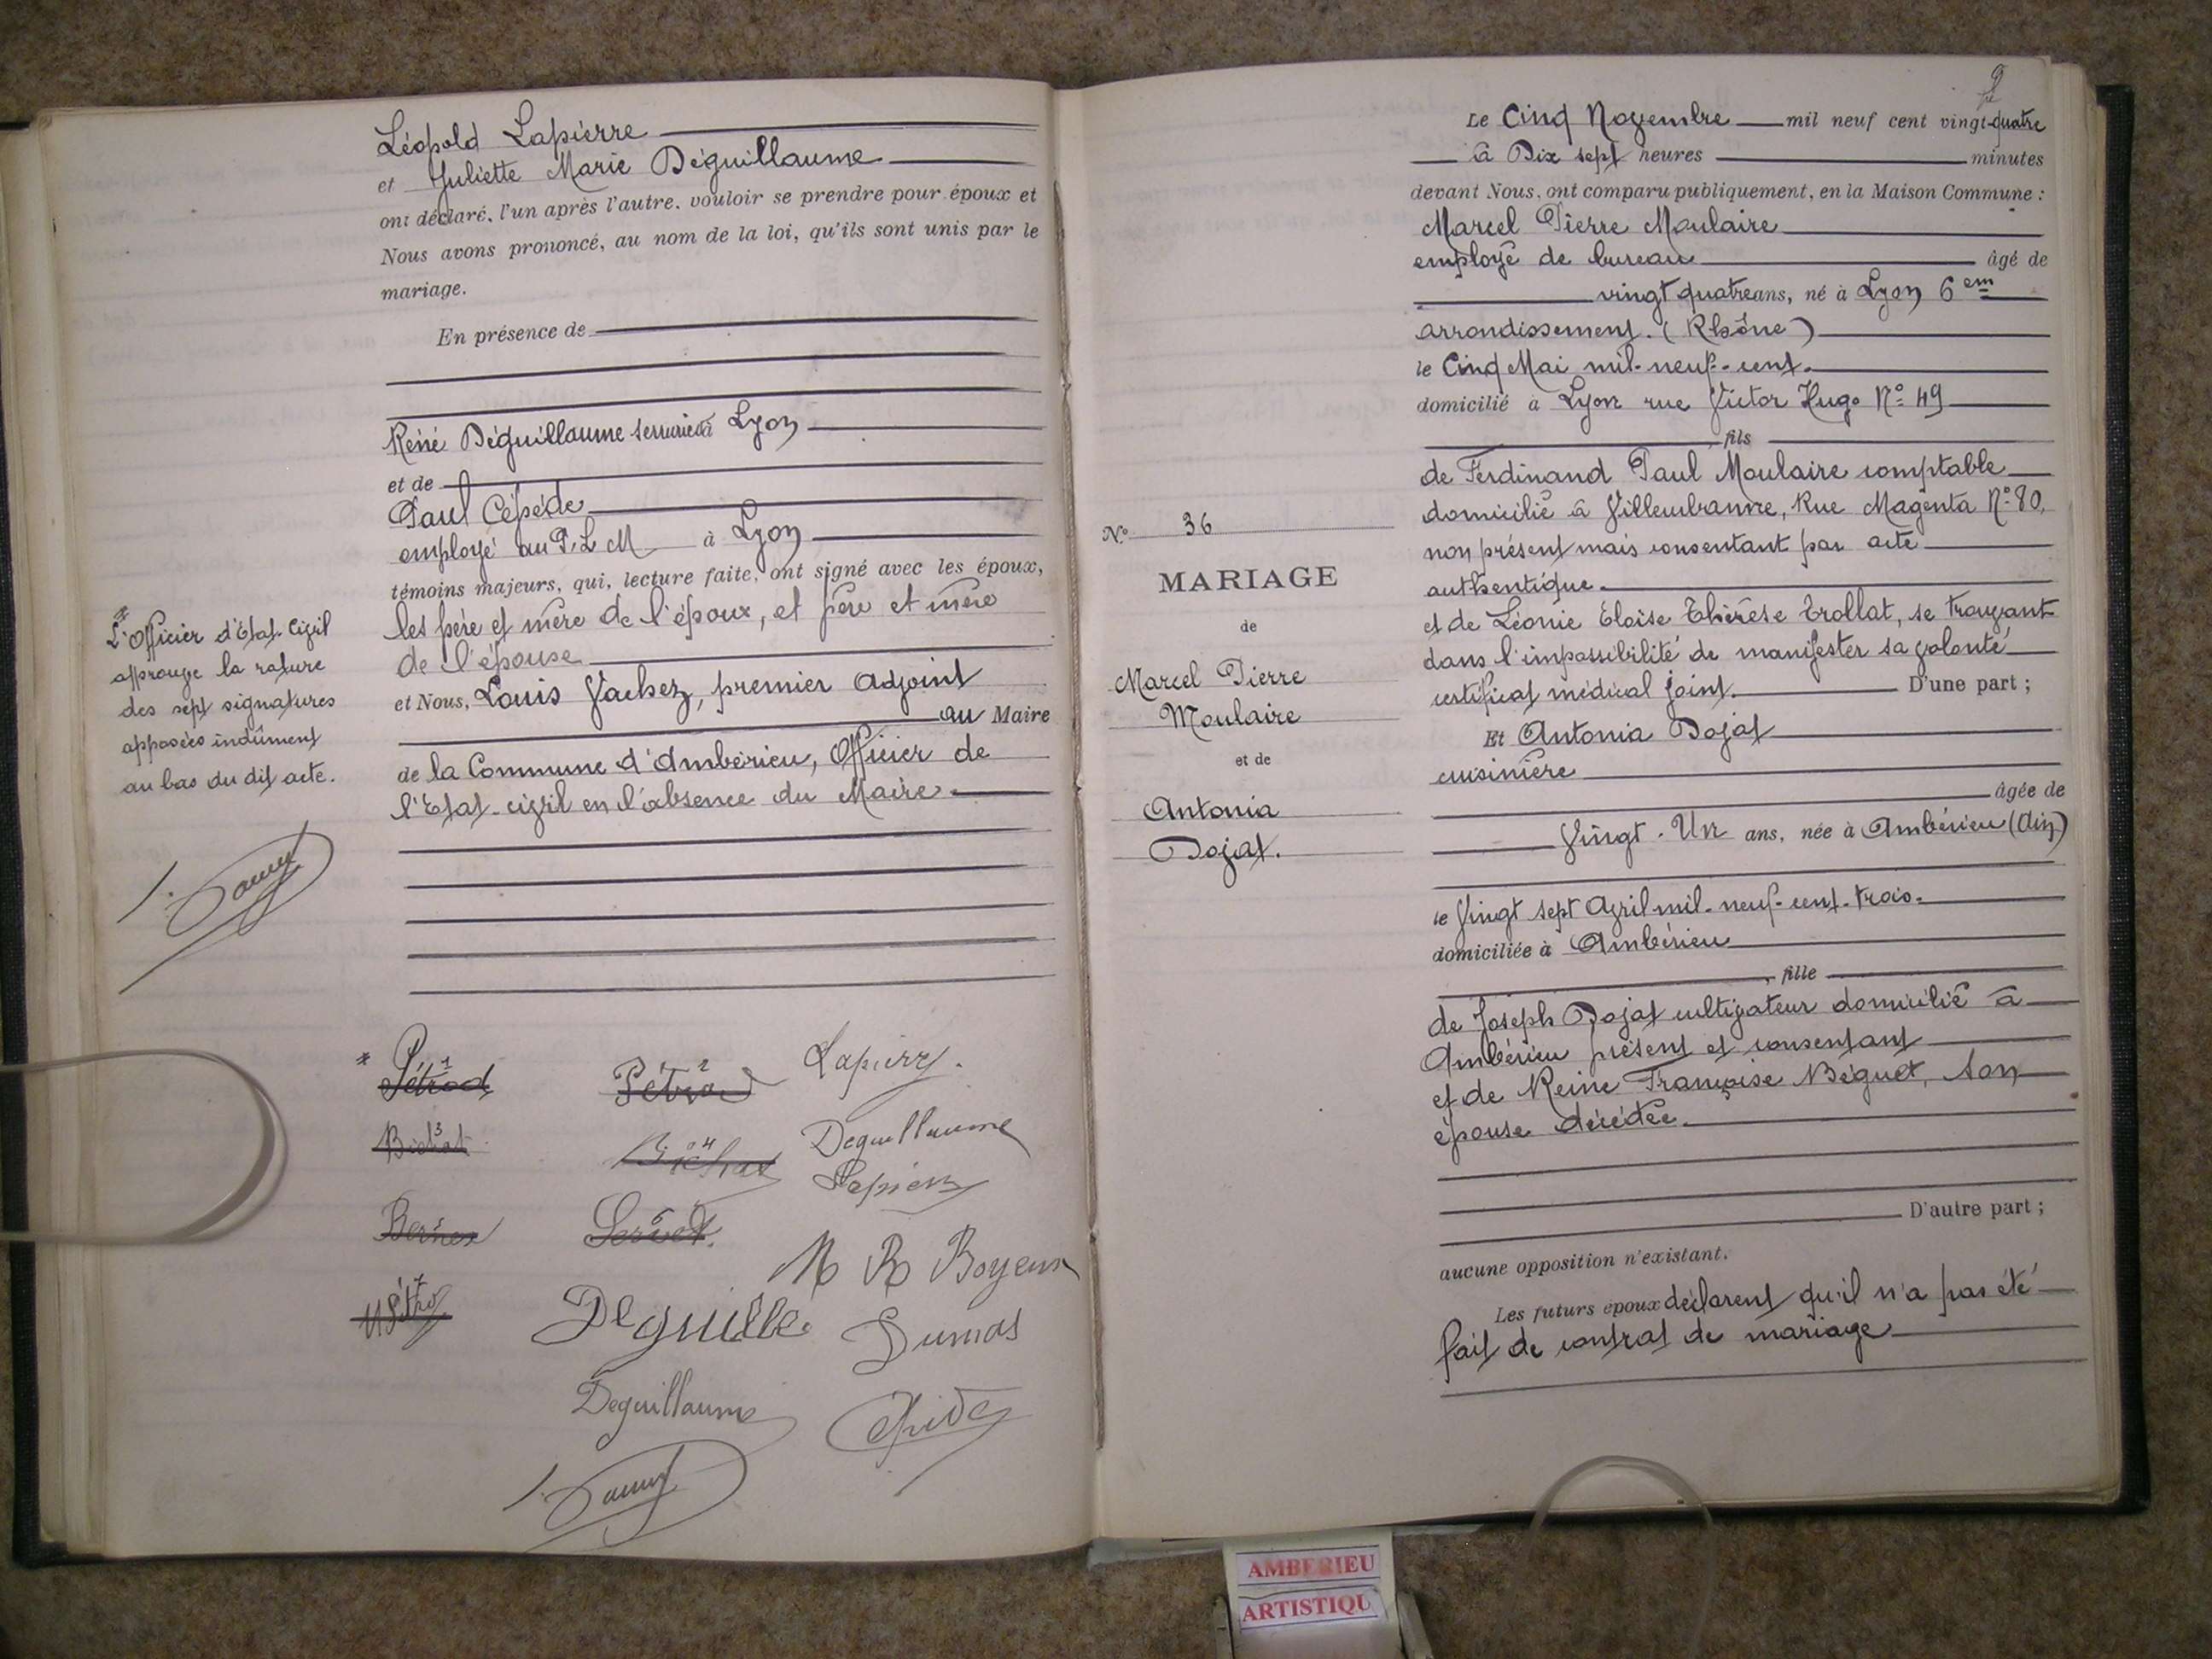 Léopold Lapierre
et Juliette Marie Déguillaume
ont déclaré, l'un après l'autre, vouloir se prendre pour époux et
Nous avons prononcé, au nom de la loi, qu'ils sont unis par le
mariage.
En présence de
René Déguillaume serrurier à Lyon
et de
Paul Cépède
employé au P.L.M à Lyon
témoins majeurs, qui, lecture faite, ont signé avec les époux,
les père et mère de l'époux, et père et mère
de l'épouse
et Nous, Louis Vachez, premier adjoint
au Maire
de la Commune d'Ambérieu, Officier de
l'Etat-civil en l'absence du Maire.
L'Officier d'Etat-Civil
approuve la rature
des sept signatures
apposées indûment
au bas du dit acte.
* Pétrod 1 Pétrod 2 Lapierre
Bichat 3 4 Deguillaume
Lapierre
Bernex Servet 6
M R Boyeux
7 Deguille Dumas
Deguillaume
9
Le Cinq Novembre mil neuf cent vingt-quatre
à Dix sept heures minutes
devant Nous, ont comparu publiquement, en la Maison Commune :
Marcel Pierre Moulaire
employé de bureau âgé de
vingt quatre ans, né à Lyon 6em
arrondissement. (Rhône)
le Cinq Mai mil-neuf-cent.
domicilié à Lyon rue Victor Hugo N° 49
, fils
de Ferdinand Paul Moulaire comptable
domicilié à Villeurbanne, Rue Magenta N° 80,
non présent mais consentant par acte
authentique.
et de Léonie Eloise Thérèse Trollat, se trouvant
dans l'impossibilité de manifester sa volonté
certificat médical joint. D'une part ;
Et Antonia Dojat
cuisinière
âgée de
Vingt-Un ans, née à Ambérieu (Ain)
le Vingt sept Avril mil-neuf-cent-trois.
domiciliée à Ambérieu
, fille
de Joseph Dojat cultivateur domicilié à
Ambérieu présent et consentant
et de Reine Françoise Béguet, son
épouse décédée.
D'autre part ;
aucune opposition n'existant.
Les futurs époux déclarent qu'il n'a pas été
fait de contrat de mariage
N° 36
MARIAGE
de
Marcel Pierre
Moulaire
et de
Antonia
Dojat.
AMBERIEU
ARTISTIQU